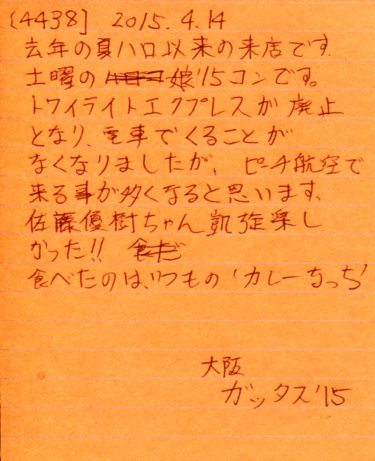 [4438] 2015.4.14
去年の夏ハロ以来の来店です.
土曜の娘'15コンです。
トワイライトエクプレスが廃止
となり、電車でくることが
なくなりましたが、ピーチ航空で
来る事が多くなると思います、
佐藤優樹ちゃん凱旋楽し
かった!!
食べたのは、いつもの'カレーなっち'
大阪
ガッタス'15